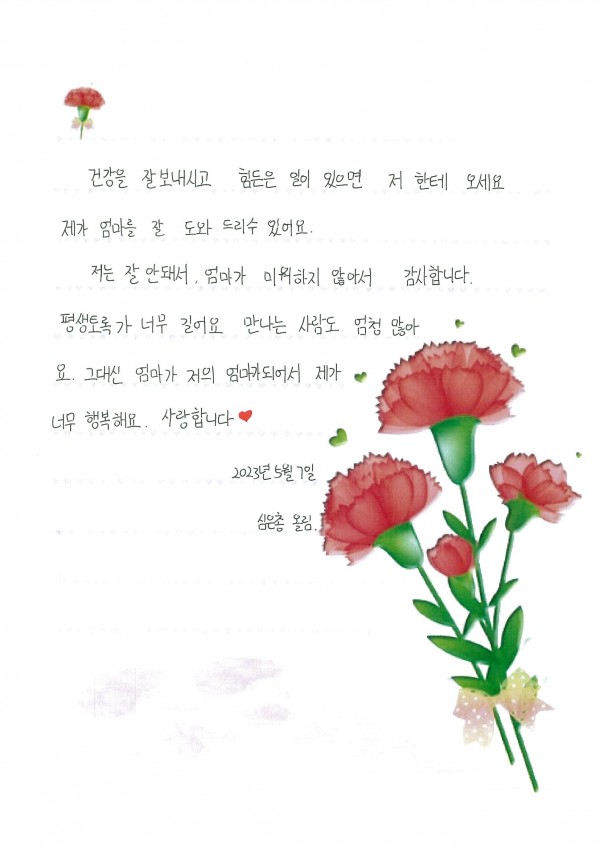 건강을 잘 보내시고 힘든은 일이 있으면 저 한테 오세요
제가 엄마를 잘 도와 드리수 있어요.
저는 잘 안돼서, 엄마가 미워하지 않아서 감사합니다.
평생토록가 너무 길어요 만나는 사람도 엄청 많아
요. 그대신 엄마가 저의 엄마가되어서 제가
너무 행복해요. 사랑합니다
2023년 5월 7일
심은총 올림.